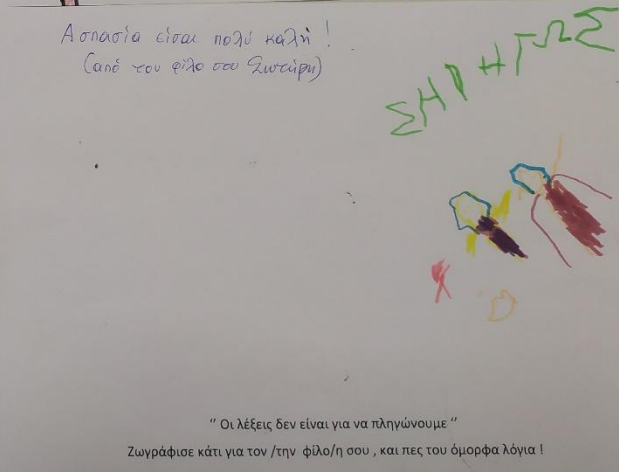 Ασπασία είσαι πολύ καλή !
(από τον φίλο σου Σωτήρη)
ΣΗΡΗΓΩΣ
“ Οι λέξεις δεν είναι για να πληγώνουμε ”
Ζωγράφισε κάτι για τον /την φίλο/η σου , και πες του όμορφα λόγια !